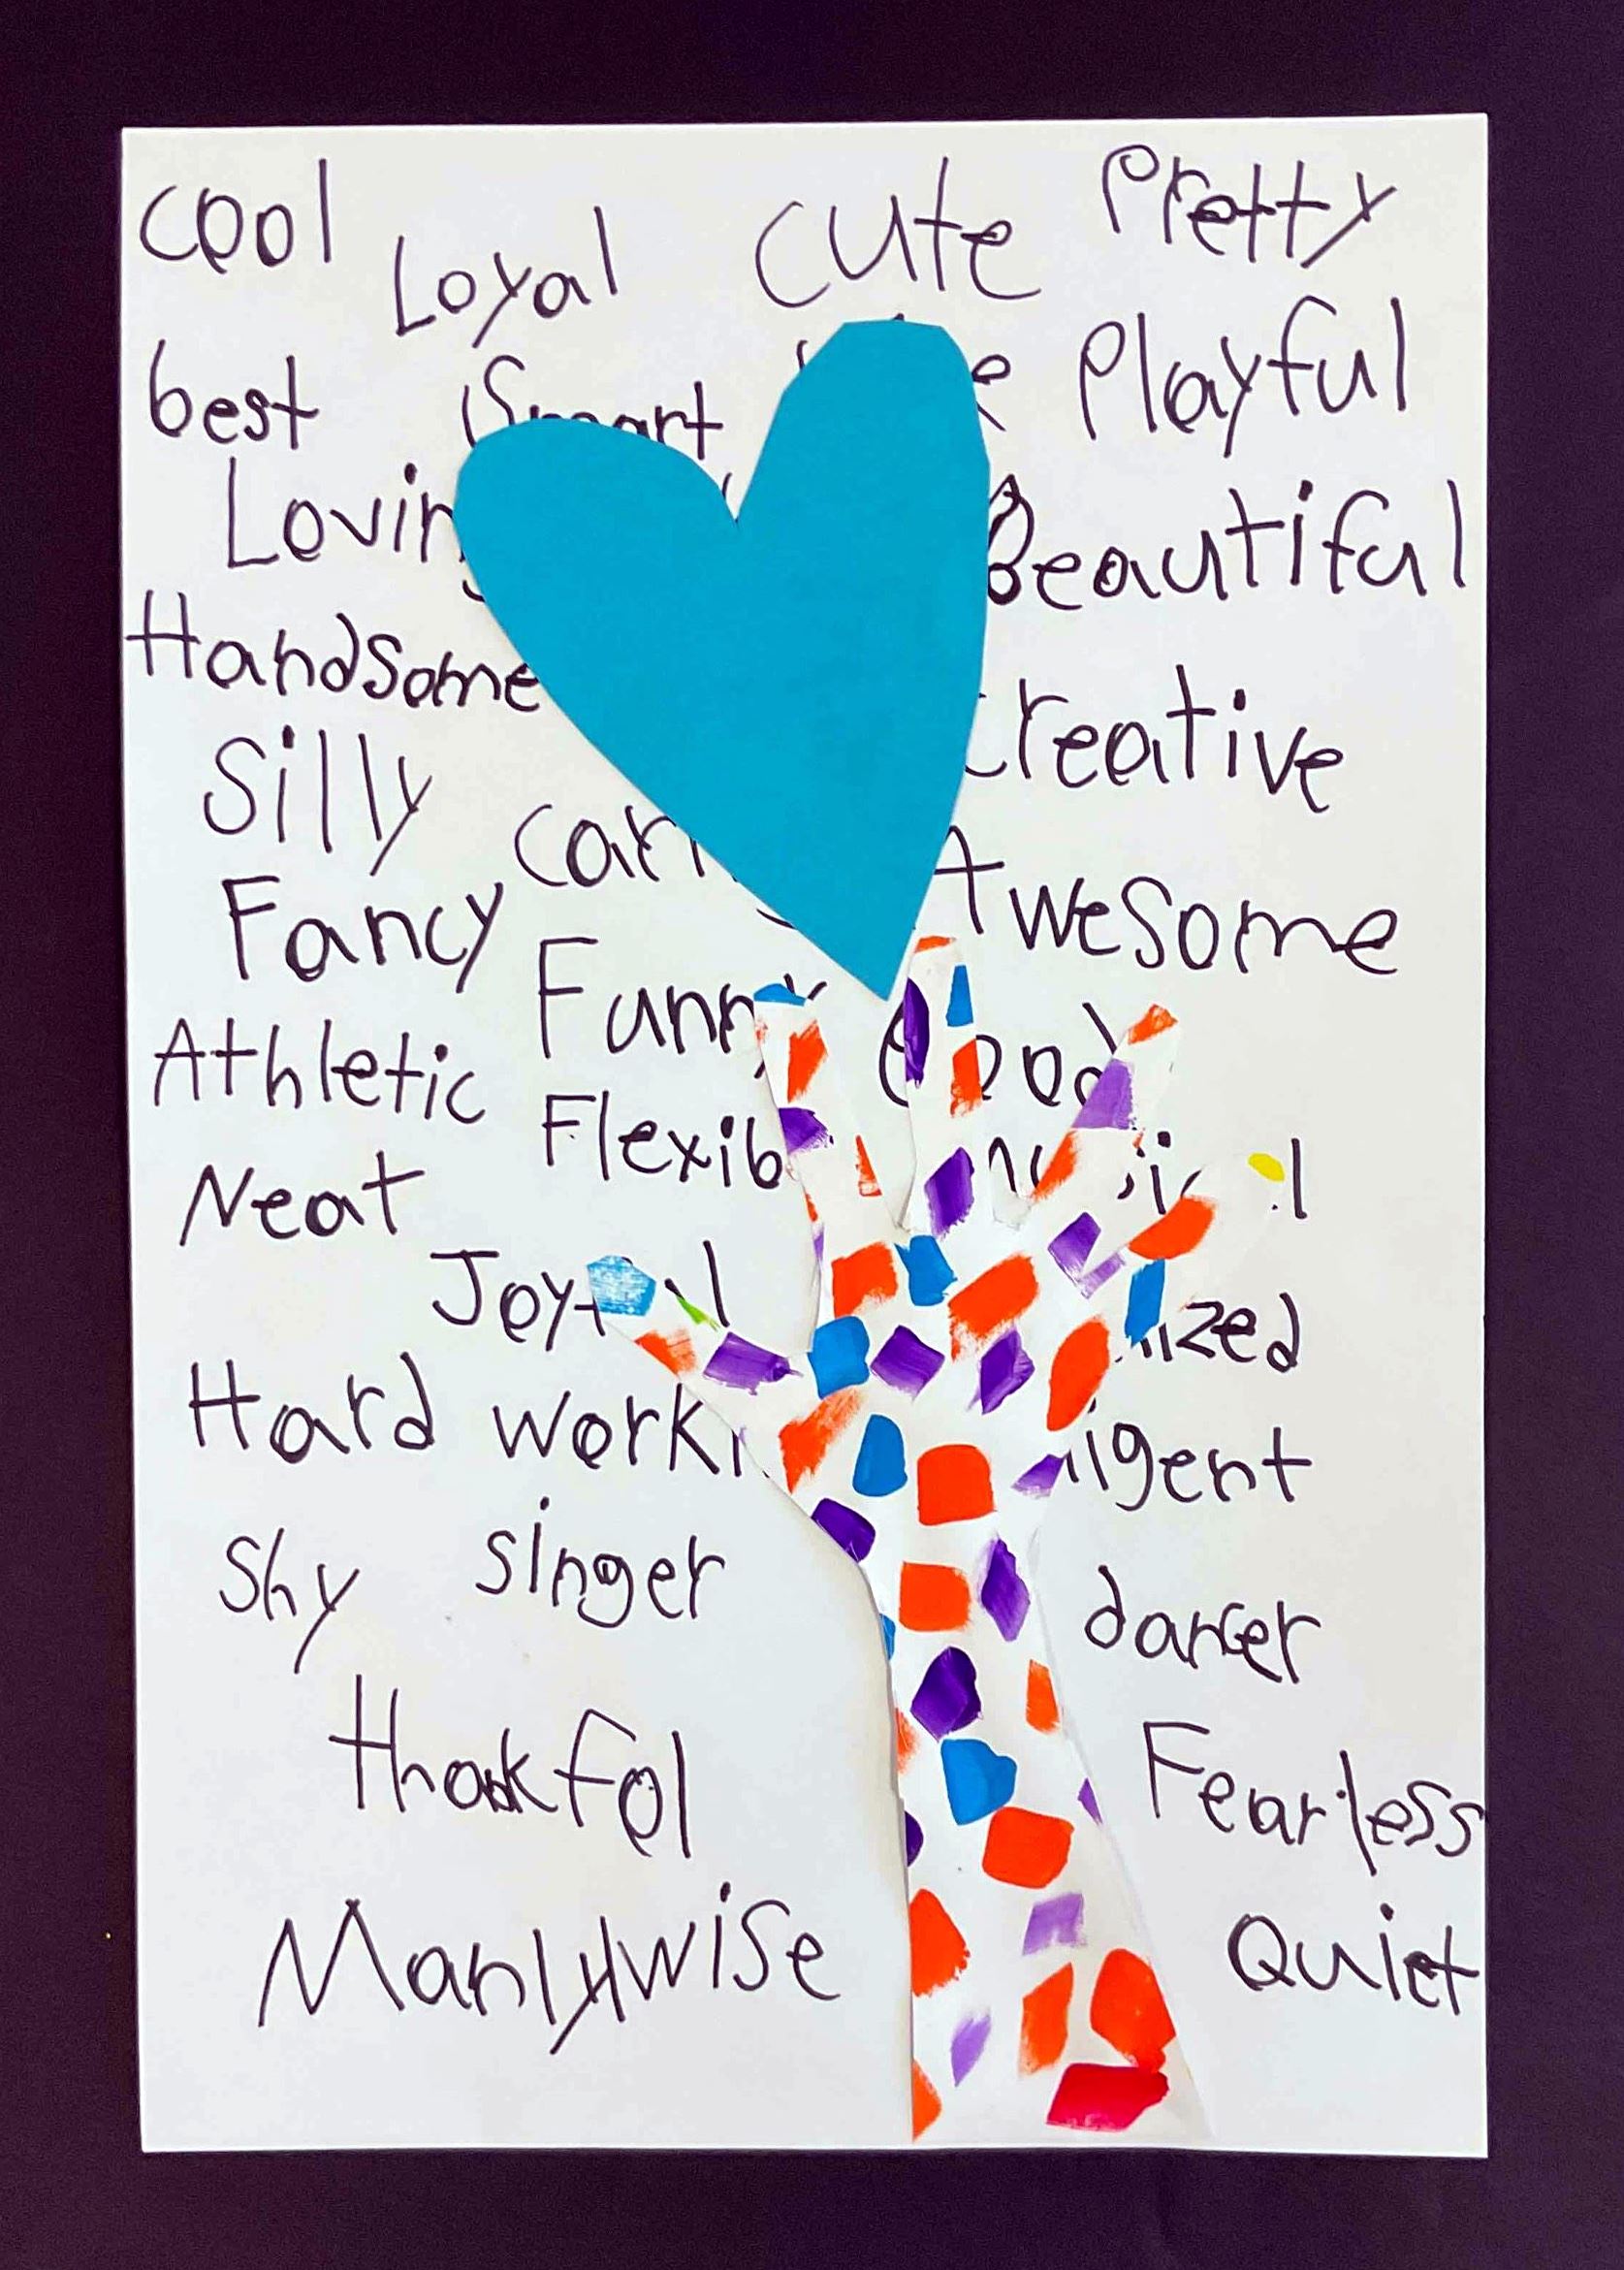 cool Loyal cute Pretty
best Smart Playful
Loving Beautiful
Handsome creative
Silly caring
Fancy Awesome
Funny Good
Athletic Flexib
Neat
Joyful
Hard worki
shy singer dancer
thankfol Fearless
Manlywise Quiet